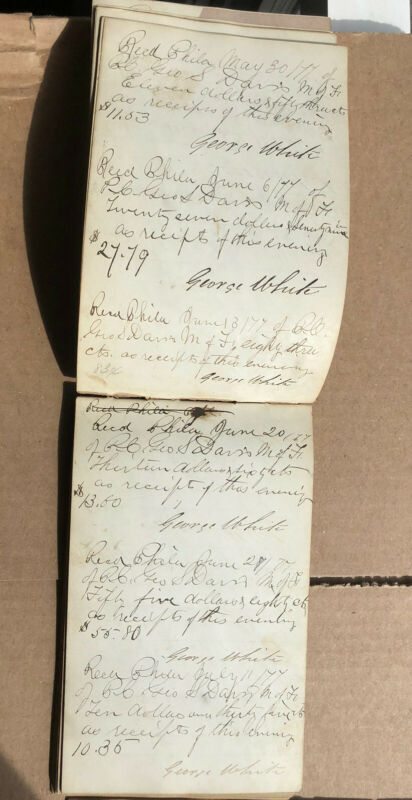 Recd Phila May 30/77 of
P.C. Geo S Davis M of Fi
Eleven dollars & fifty three cts
as receipts of this evening
$11.53
George White
Recd Phila June 6/77 of
P.C. Geo S Davis M of Fi
Twenty seven dollars & seventy nine
as receipts of this evening
$27.79
George White
Recd Phila June 13/77 of P.C.
Geo S Davis M of Fi, eighty three
cts. as receipts of this evening
83c
George White
Recd Phila
Recd Phila June 20/77
of P.C. Geo S Davis M of Fi
Thirteen dollars & sixty cts
as receipts of this evening
$13.60
George White
Recd Phila June 27/77
of P.C. Geo S Davis M of Fi
Fifty five dollars & eighty cts
as receipts of this evening
$55.80
George White
Recd Phila July 11/77
of P.C. Geo S Davis M of Fi
Ten dollars and thirty five cts
as receipts of this evening
10.35
George White